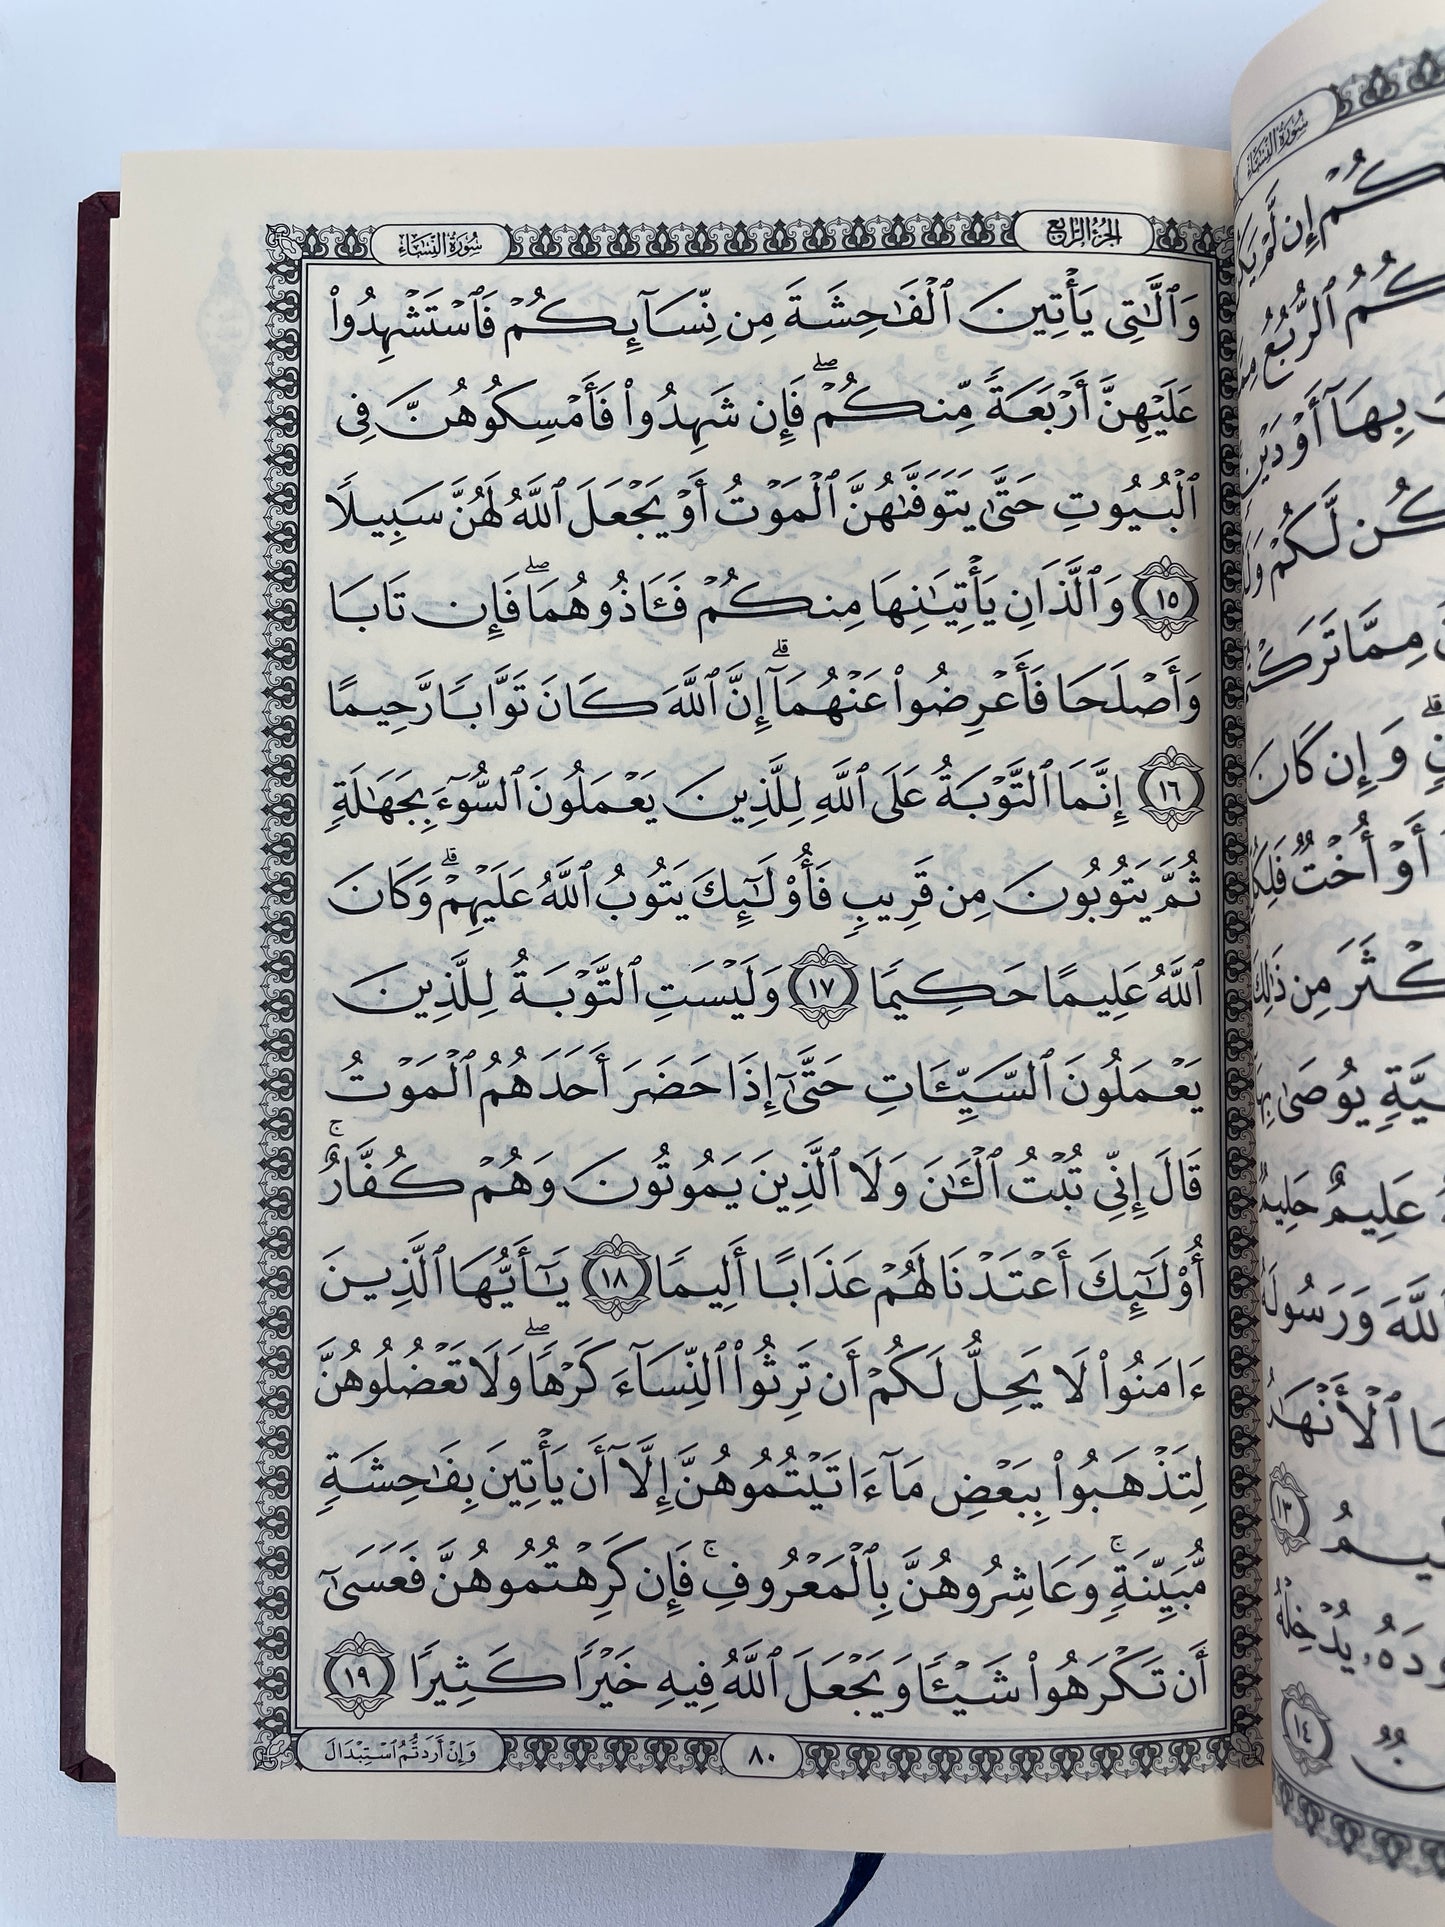 الجزء الرابع
سورة النساء
وَٱلَّٰتِى يَأْتِينَ ٱلْفَٰحِشَةَ مِن نِّسَآئِكُمْ فَٱسْتَشْهِدُوا۟
عَلَيْهِنَّ أَرْبَعَةً مِّنكُمْ ۖ فَإِن شَهِدُوا۟ فَأَمْسِكُوهُنَّ فِى
ٱلْبُيُوتِ حَتَّىٰ يَتَوَفَّىٰهُنَّ ٱلْمَوْتُ أَوْ يَجْعَلَ ٱللَّهُ لَهُنَّ سَبِيلًا
١٥ وَٱلَّذَانِ يَأْتِيَٰنِهَا مِنكُمْ فَـَٔاذُوهُمَا ۖ فَإِن تَابَا
وَأَصْلَحَا فَأَعْرِضُوا۟ عَنْهُمَآ ۗ إِنَّ ٱللَّهَ كَانَ تَوَّابًا رَّحِيمًا
١٦ إِنَّمَا ٱلتَّوْبَةُ عَلَى ٱللَّهِ لِلَّذِينَ يَعْمَلُونَ ٱلسُّوٓءَ بِجَهَٰلَةٍ
ثُمَّ يَتُوبُونَ مِن قَرِيبٍ فَأُو۟لَٰٓئِكَ يَتُوبُ ٱللَّهُ عَلَيْهِمْ ۗ وَكَانَ
ٱللَّهُ عَلِيمًا حَكِيمًا ١٧ وَلَيْسَتِ ٱلتَّوْبَةُ لِلَّذِينَ
يَعْمَلُونَ ٱلسَّيِّـَٔاتِ حَتَّىٰٓ إِذَا حَضَرَ أَحَدَهُمُ ٱلْمَوْتُ
قَالَ إِنِّى تُبْتُ ٱلْـَٰٔنَ وَلَا ٱلَّذِينَ يَمُوتُونَ وَهُمْ كُفَّارٌ ۚ
أُو۟لَٰٓئِكَ أَعْتَدْنَا لَهُمْ عَذَابًا أَلِيمًا ١٨ يَٰٓأَيُّهَا ٱلَّذِينَ
ءَامَنُوا۟ لَا يَحِلُّ لَكُمْ أَن تَرِثُوا۟ ٱلنِّسَآءَ كَرْهًا ۖ وَلَا تَعْضُلُوهُنَّ
لِتَذْهَبُوا۟ بِبَعْضِ مَآ ءَاتَيْتُمُوهُنَّ إِلَّآ أَن يَأْتِينَ بِفَٰحِشَةٍ
مُّبَيِّنَةٍ ۚ وَعَاشِرُوهُنَّ بِٱلْمَعْرُوفِ ۚ فَإِن كَرِهْتُمُوهُنَّ فَعَسَىٰٓ
أَن تَكْرَهُوا۟ شَيْـًٔا وَيَجْعَلَ ٱللَّهُ فِيهِ خَيْرًا كَثِيرًا ١٩
٨٠
وَإِنْ أَرَدتُّمُ ٱسْتِبْدَالَ
سورة النساء
كُمْ إِن لَّمْ
كُمُ ٱلرُّبُعُ
بِهَآ أَوْ دَيْنٍ
كُن لَّكُمْ
مِمَّا
وَإِن كَانَ
أَوْ أُخْتٌ
مِن ذَٰلِكَ
يُوصَىٰ
عَلِيمٌ حَلِيمٌ
وَرَسُولَهُ
ٱلْأَنْهَٰرُ
١٣
يُدْخِلْهُ
١٤